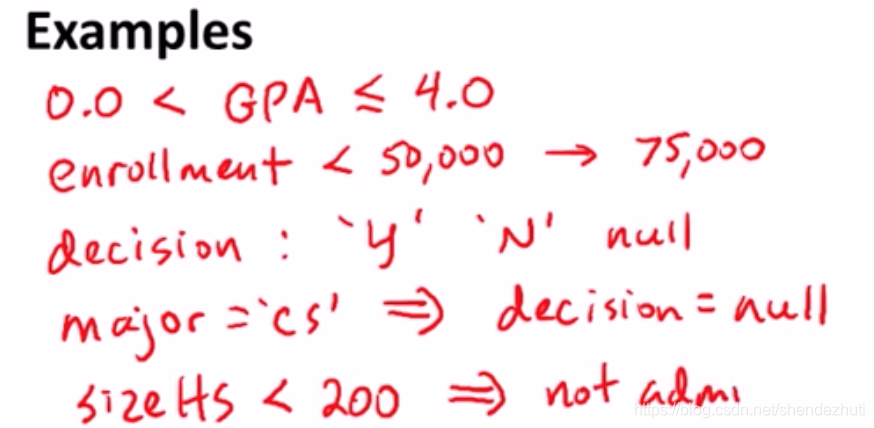 Examples
0.0 < GPA ≤ 4.0
enrollment < 50,000 → 75,000
decision : 'Y' 'N' null
major = 'CS' ⇒ decision = null
sizeHS < 200 ⇒ not admi
https://blog.csdn.net/shendezhuti